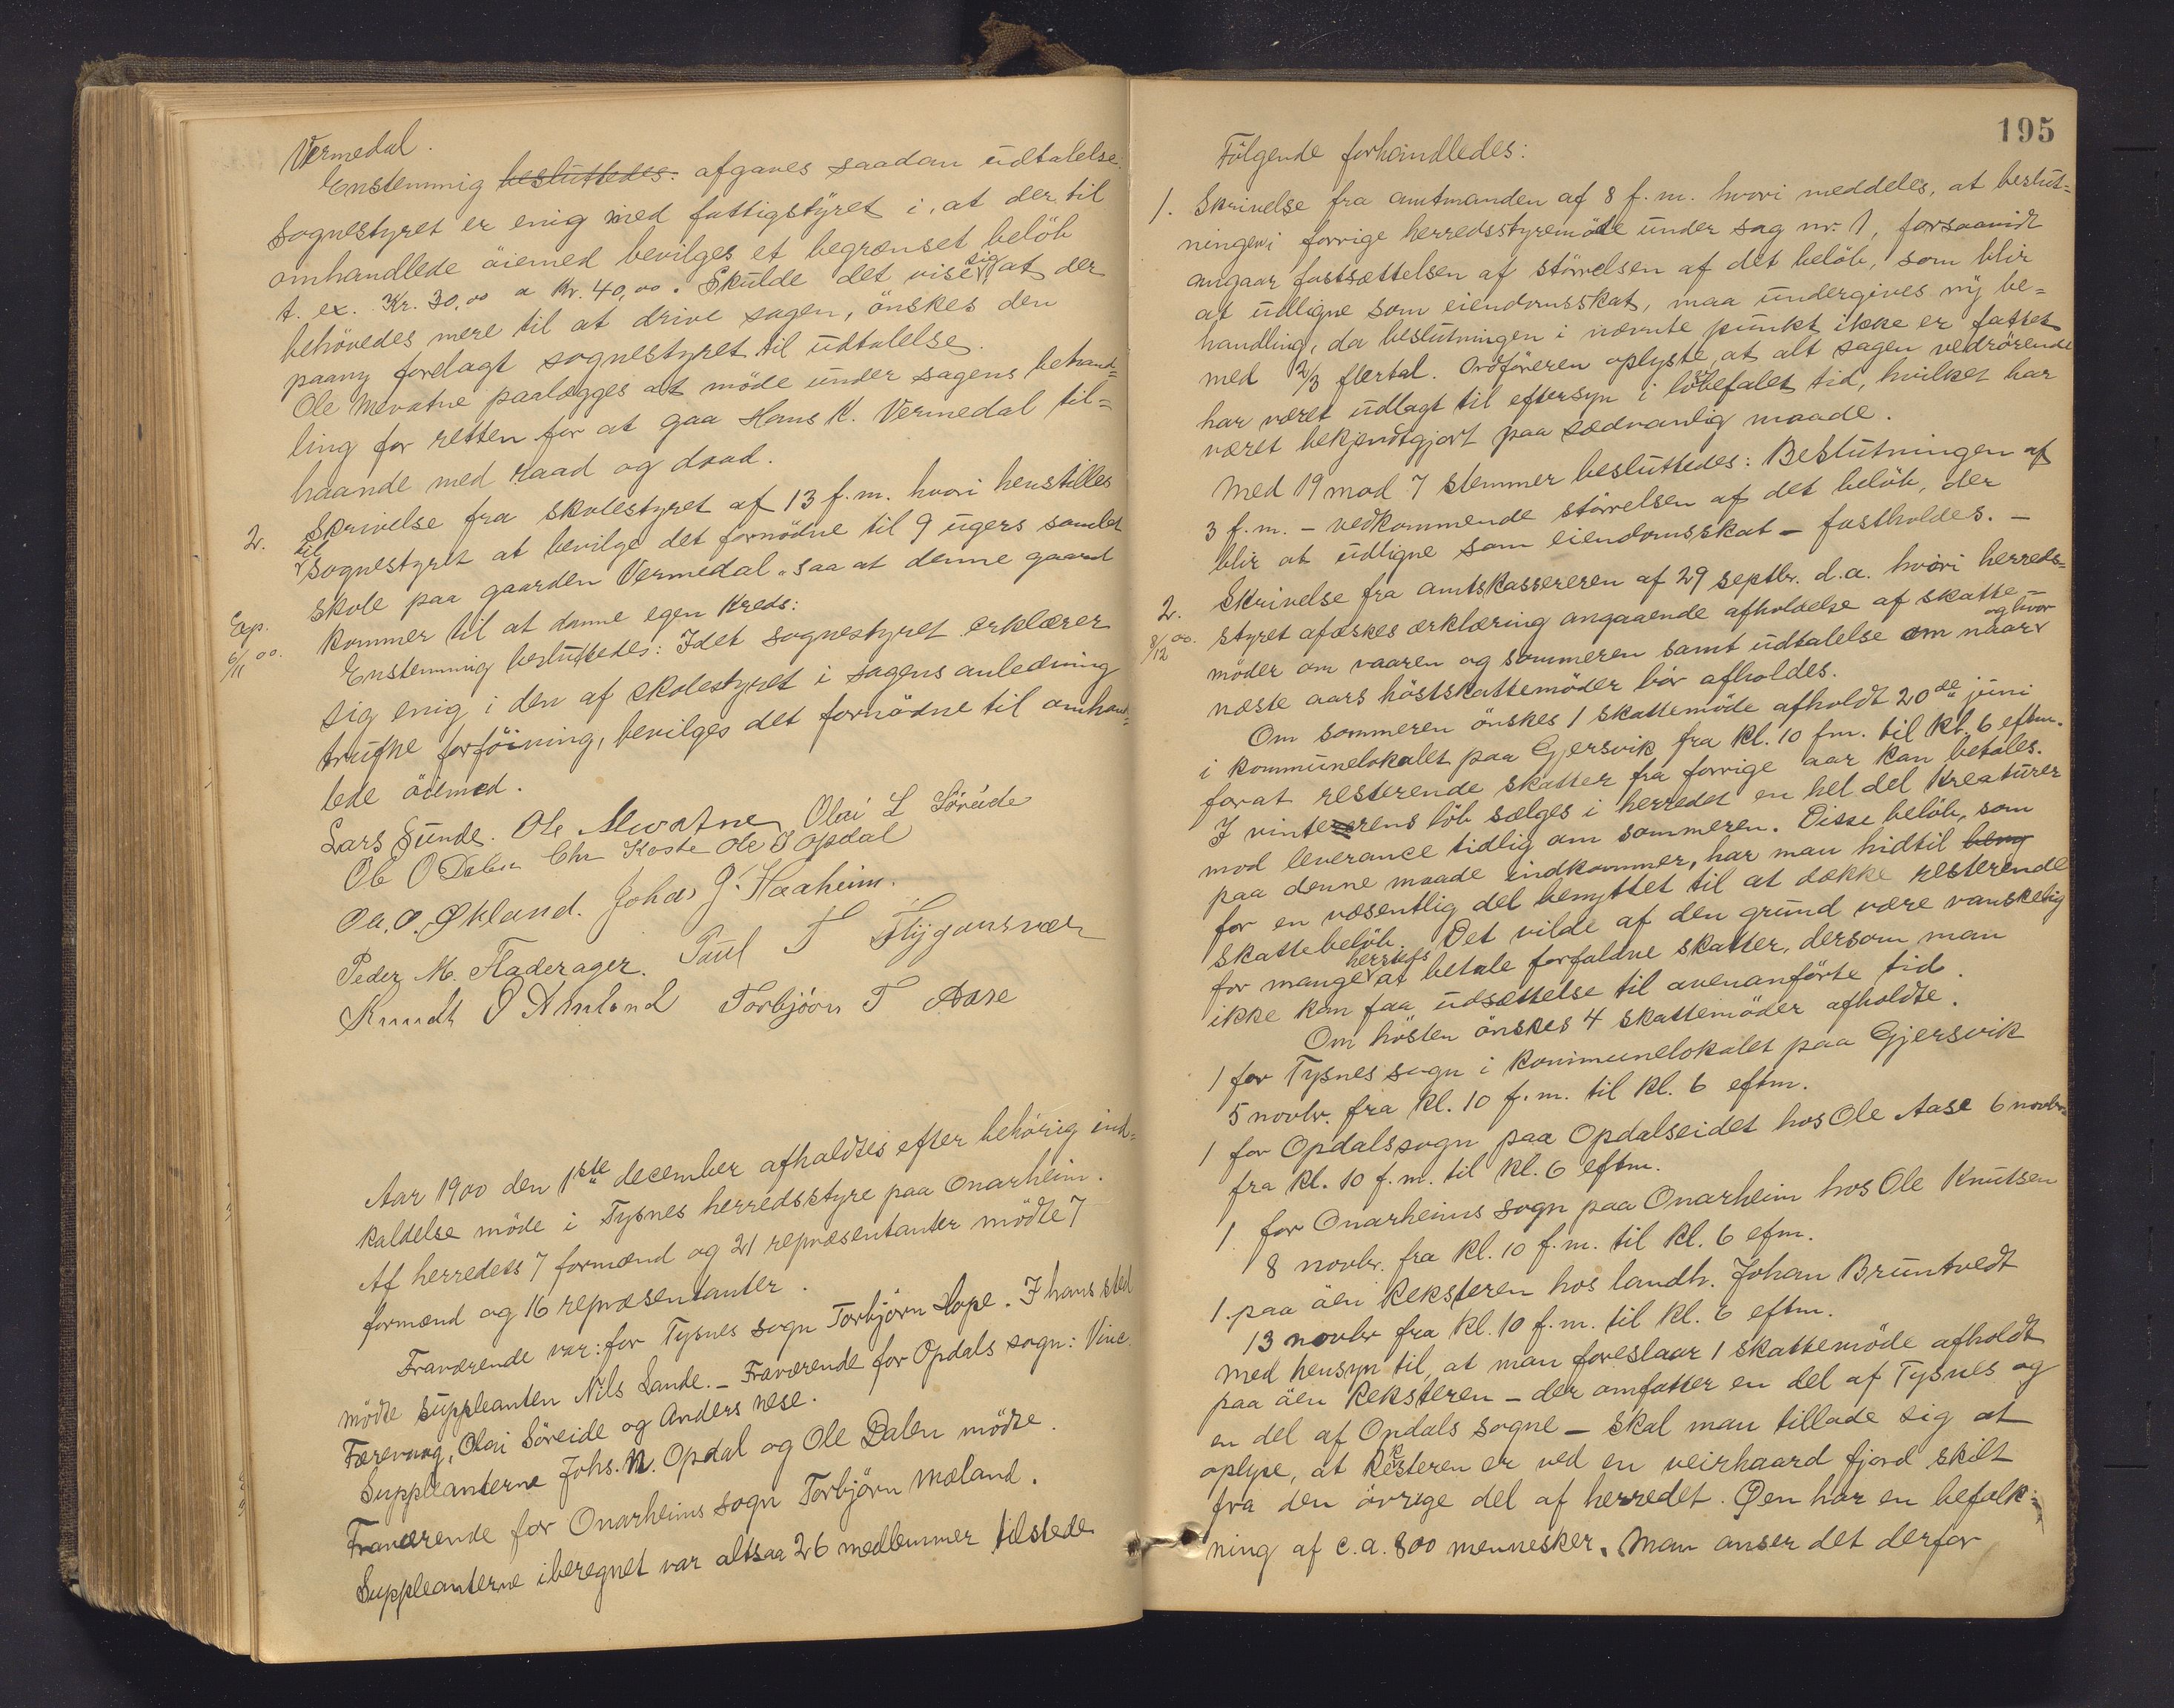 Vermedal.
Enstemmig besluttedes: afgaves saadan udtalelse:
Sognestyret er enig med fattigstyret i, at der til
omhandlede öiemed bevilges et begrænset belöb
t. ex. Kr. 30,00 a Kr. 40,00. Skulde det vise sig at der
behövedes mere til at drive sagen, önskes den
paany forelagt sognestyret til udtalelse.
Ole Mevatne paalægges at möde under sagens behand=
ling for retten for at gaa Hans K. Vermedal til=
haande med raad og daad.
2. Skrivelse fra skolestyret af 13 f.m. hvori henstilles
til sognestyret at bevilge det fornödne til 9 ugers samlet
skole paa gaarden Vermedal, saa at denne gaard
Exp. 6/11 00. kommer til at danne egen kreds:
Enstemmig besluttedes: Idet sognestyret erklærer
sig enig i den af skolestyret i sagens anledning
trufne forföining, bevilges det fornödne til omhand=
lede öiemed.
Lars Sunde. Ole Mevatne Olai L Söreide
Ole O Dalen Chr Koste Ole J Opdal
Ole. O. Økland. Johas J. Haaheim.
Peder M. Fladerager. Paul T Flygansvær
Knudt O Amland Torbjörn T Aase
Aar 1900 den 1ste december afholdtes efter behörig ind=
kaldelse möde i Tysnes herredsstyre paa Onarheim.
Af herredets 7 formænd og 21 repræsentanter mödte 7
formænd og 16 repræsentanter.
Fraværende var: for Tysnes sogn Torbjörn Hope. I hans sted
mödte suppleanten Nils Lande. - Fraværende for Opdals sogn: Vinc.
Færevaag, Olai Söreide og Anders Nese.
Suppleanterne Johs. N. Opdal og Ole Dalen mödte.
Fraværende for Onarheims sogn Torbjörn Mæland.
Suppleanterne iberegnet var altsaa 26 medlemmer tilstede
195
Fölgende forhandledes:
1. Skrivelse fra amtmanden af 8 f.m. hvori meddeles, at beslut=
ningen i forrige herredsstyremöde under sag nr. 1, forsaavidt
angaar fastsættelsen af störrelsen af det belöb, som blir
at udligne som eiendomsskat, maa undergives ny be=
handling, da beslutningen i nævnte punkt ikke er fattet
med 2/3 flertal. Ordföreren oplyste, at alt sagen vedrörende
har været udlagt til eftersyn i lovbefalet tid, hvilket har
været bekjendtgjort paa sædvanlig maade.
Med 19 mod 7 stemmer besluttedes: Beslutningen af
3 f.m. - vedkommende störrelsen af det belöb, der
blir at udligne som eiendomsskat - fastholdes. -
2. Skrivelse fra amtskassereren af 29 septbr. d.a. hvori herreds=
8/12 00. styret afæskes erklæring angaaende afholdelse af skatte=
möder om vaaren og sommeren samt udtalelse om naar og hvor
næste aars höstskattemöder bör afholdes.
Om sommeren önskes 1 skattemöde afholdt 20de juni
i kommunelokalet paa Gjersvik fra kl. 10 fm. til kl. 6 eftm.
forat resterende skatter fra forrige aar kan betales.
I vintererens löb sælges i herredet en hel del kreaturer
mod leverance tidlig om sommeren. Disse belöb, som
paa denne maade indkommer, har man hidtil beny
for en væsentlig del benyttet til at dække resterende
skattebelöb. Det vilde af den grund være vanskelig
for mange herreds at betale forfaldne skatter, dersom man
ikke kan faa udsættelse til ovenanförte tid.
Om hösten önskes 4 skattemöder afholdte.
1 for Tysnes sogn i kommunelokalet paa Gjersvik
5 novbr. fra kl. 10 f.m. til kl. 6 eftm.
1 for Opdals sogn paa Opdalseidet hos Ole Aase 6 novbr.
fra kl. 10 f.m. til kl. 6 eftm.
1 for Onarheims sogn paa Onarheim hos Ole Knutsen
8 novbr. fra kl. 10 f.m. til kl. 6 efm.
1 paa öen Reksteren hos landh. Johan Bruntvedt
13 novbr fra kl. 10 f.m. til kl. 6 eftm.
Med hensyn til, at man foreslaar 1 skattemöde afholdt
paa öen Reksteren - der omfatter en del af Tysnes og
en del af Opdals sogne - skal man tillade sig at
oplyse, at Reksteren er ved en veirhaard fjord skilt
fra den övrige del af herredet. Øen har en befolk=
ning af c.a. 800 mennesker. Man anser det derfor